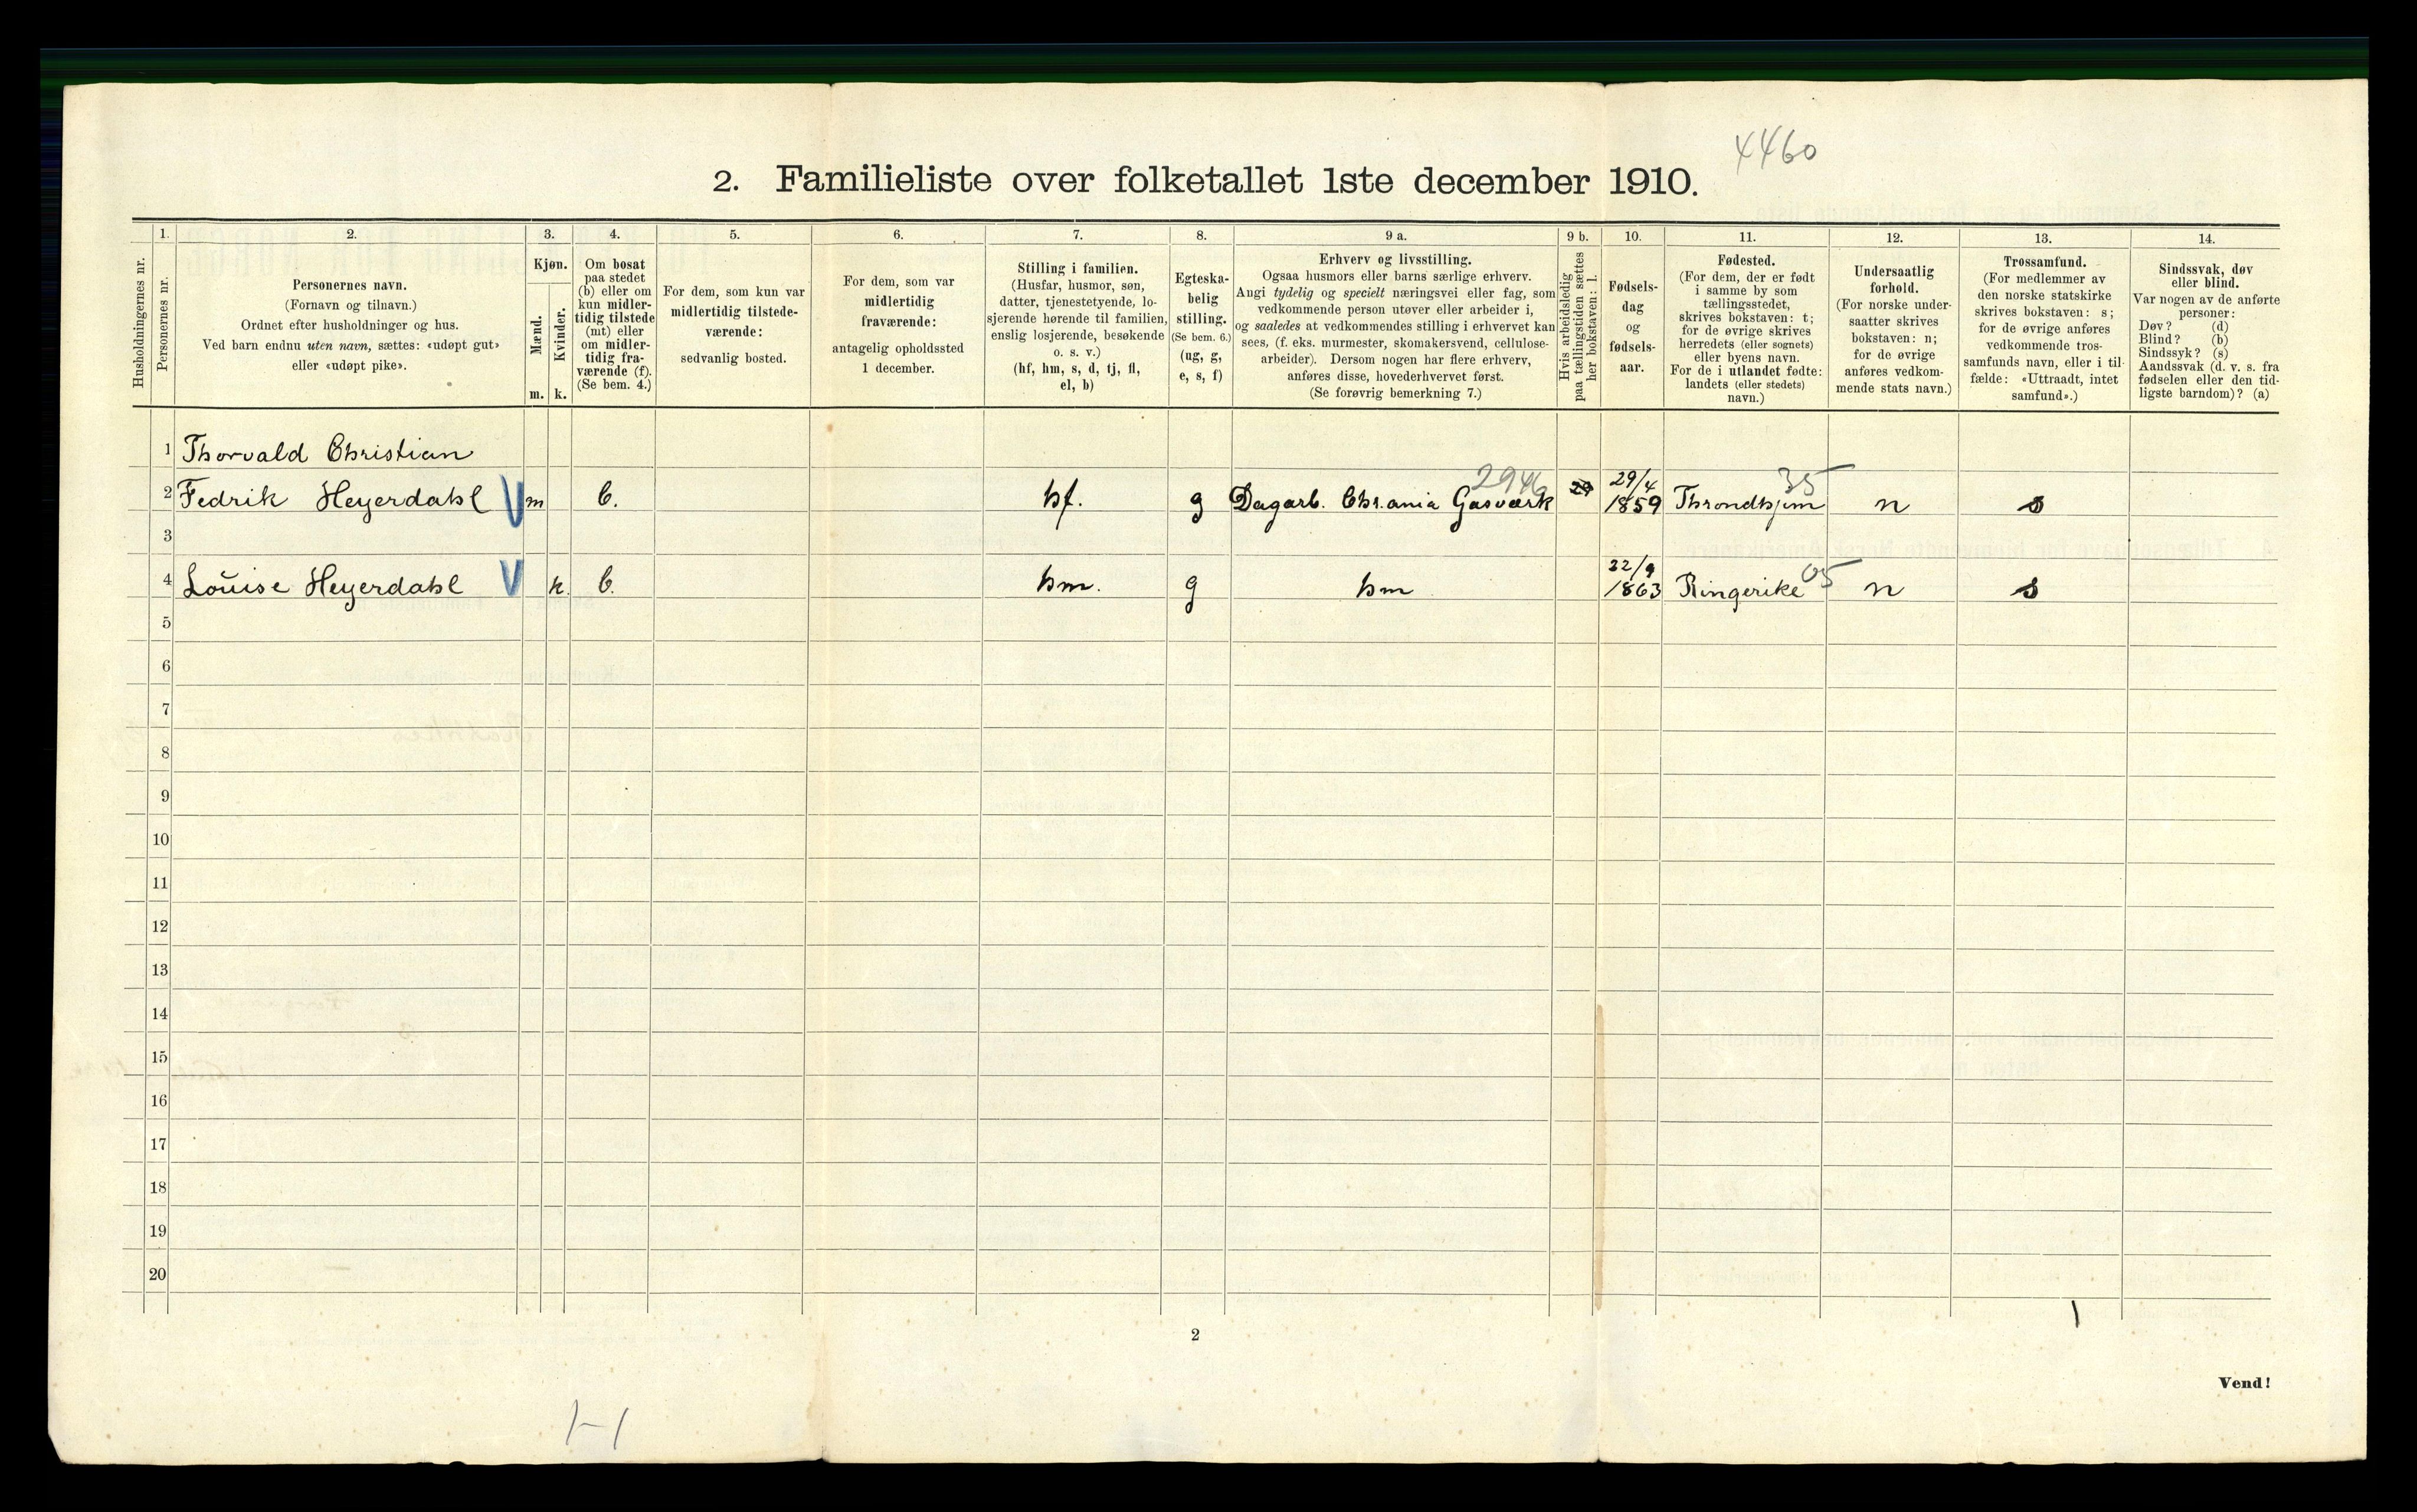 4460
2. Familieliste over folketallet 1ste december 1910.
Husholdningernes nr.
1.
Personernes nr.
2.
Personernes navn.
(Fornavn og tilnavn.)
Ordnet efter husholdninger og hus.
Ved barn endnu uten navn, sættes: «udøpt gut»
eller «udøpt pike».
3.
Kjøn.
Mænd.
Kvinder.
m. k.
4.
Om bosat
paa stedet
(b) eller om
kun midler-
tidig tilstede
(mt) eller
om midler-
tidig fra-
værende (f).
(Se bem. 4.)
5.
For dem, som kun var
midlertidig tilstede-
værende:
sedvanlig bosted.
6.
For dem, som var
midlertidig
fraværende:
antagelig opholdssted
1 december.
7.
Stilling i familien.
(Husfar, husmor, søn,
datter, tjenestetyende, lo-
sjerende hørende til familien,
enslig losjerende, besøkende
o. s. v.)
(hf, hm, s, d, tj, fl,
el, b)
8.
Egteska-
belig
stilling.
(Se bem. 6.)
(ug, g,
e, s, f)
9 a.
Erhverv og livsstilling.
Ogsaa husmors eller barns særlige erhverv.
Angi tydelig og specielt næringsvei eller fag, som
vedkommende person utøver eller arbeider i,
og saaledes at vedkommendes stilling i erhvervet kan
sees, (f. eks. murmester, skomakersvend, cellulose-
arbeider). Dersom nogen har flere erhverv,
anføres disse, hovederhvervet først.
(Se forøvrig bemerkning 7.)
9 b.
Hvis arbeidsledig
paa tællingstiden sættes
her bokstaven: l.
10.
Fødsels-
dag
og
fødsels-
aar.
11.
Fødested.
(For dem, der er født
i samme by som
tællingsstedet,
skrives bokstaven: t;
for de øvrige skrives
herredets (eller sognets)
eller byens navn.
For de i utlandet fødte:
landets (eller stedets)
navn.)
12.
Undersaatlig
forhold.
(For norske under-
saatter skrives
bokstaven: n;
for de øvrige
anføres vedkom-
mende stats navn.)
13.
Trossamfund.
(For medlemmer av
den norske statskirke
skrives bokstaven: s;
for de øvrige anføres
vedkommende tros-
samfunds navn, eller i til-
fælde: «Uttraadt, intet
samfund».)
14.
Sindssvak, døv
eller blind.
Var nogen av de anførte
personer:
Døv? (d)
Blind? (b)
Sindssyk? (s)
Aandssvak (d. v. s. fra
fødselen eller den tid-
ligste barndom)? (a)
1 Thorvald Christian
2 Fedrik Heyerdahl V m b. hf. g Dagarb. Chr.ania Gasværk 2946 29 29/4 1859 Throndhjem 35 n s
3
4 Louise Heyerdahl V k. b. hm. g hm 22/9 1863 Ringerike 05 n s
5
6
7
8
9
10
11
12
13
14
15
16
17
18
19
20
2
Vend!
1-1